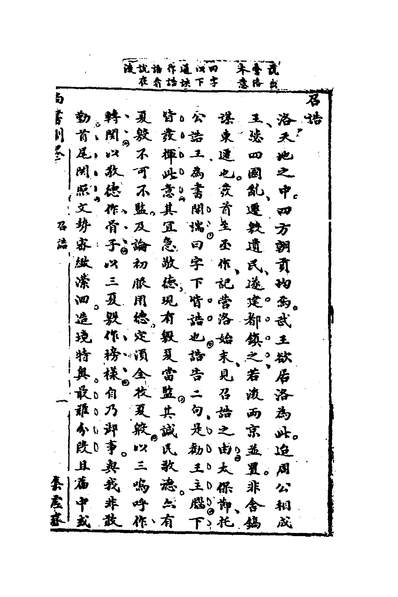 幾歲
營洛
本意
曰字
以下
通诀
作誥
語系
說在
後
召誥
洛天地之中四方朝貢均焉武王欲居洛為此迨周公相成
王懲四國亂遷殷遺民遂建都鎮之若後兩京並置非舍鎬
謀東遷也發首至丕作記營洛始末見召誥之由太保即托
公誥王為書開端曰字下皆誥也誥告二句是勸王主腦下
皆發揮此意其宜急敬德現有殷夏當監其誠民敬德亦有
夏殷不可不監及論初服用德定須全收夏殷以三嗚呼作
轉関以敬德作骨子以三夏殷作榜樣自乃御事與我非敢
勤首尾関照文勢容縱瀠洄造境特奧最難分段且篇中或
尚書
召誥
一